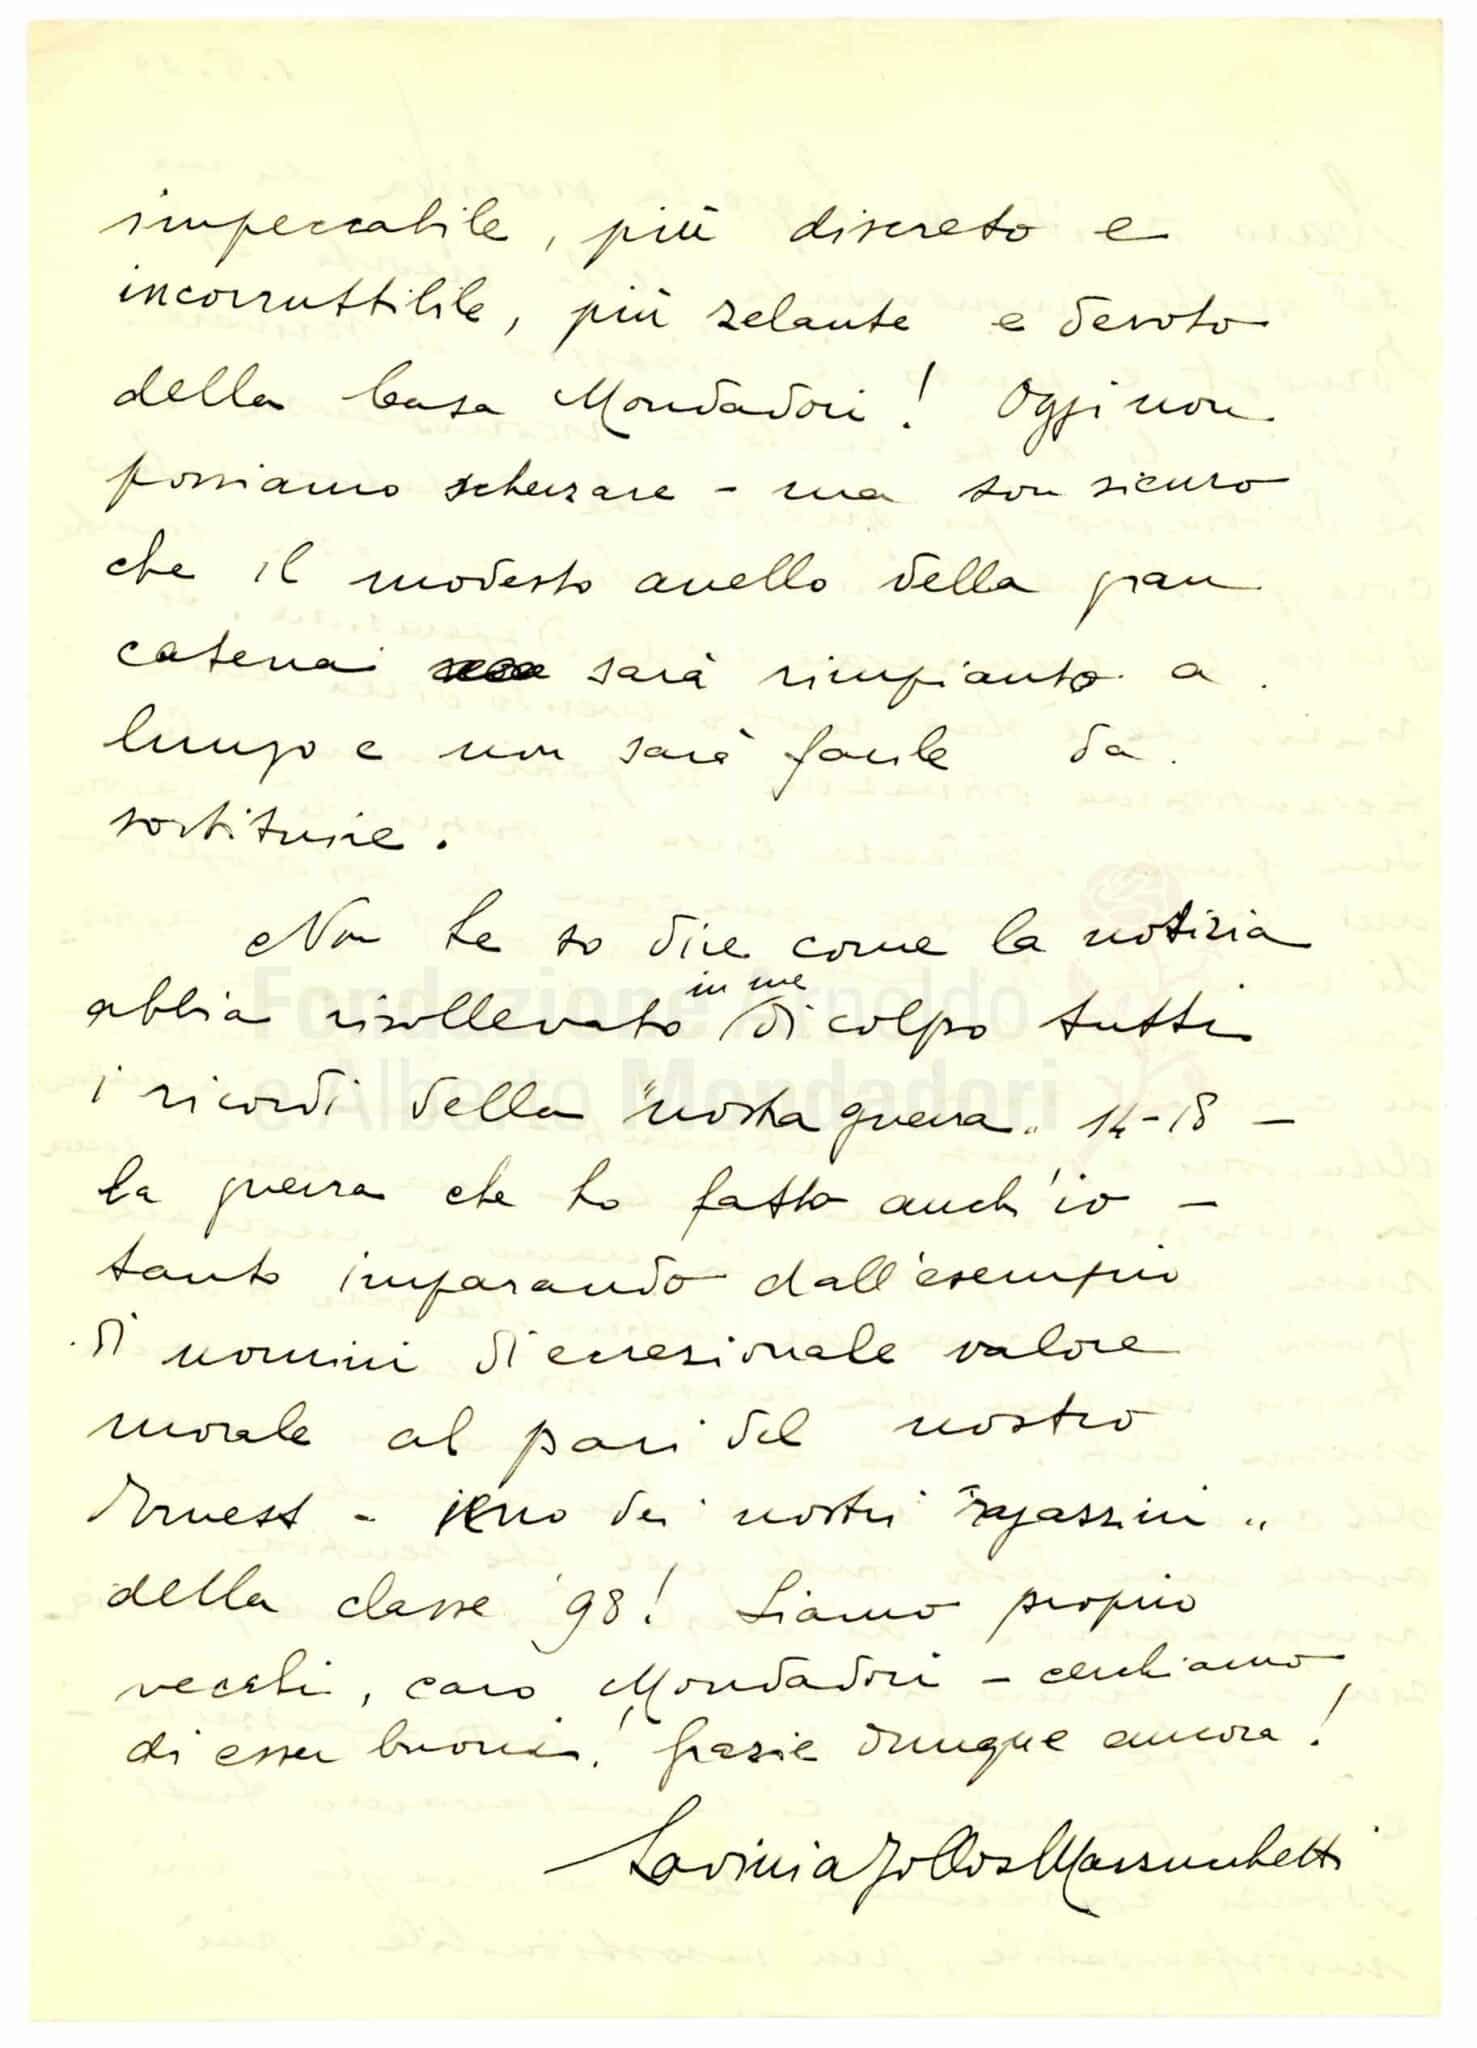 impeccabile, più discreto e
incorruttibile, più zelante e devoto
della Casa Mondadori! Oggi non
possiamo scherzare - ma son sicuro
che il modesto anello della gran
catena sarà rimpianto a
lungo e non sarà facile da
sostituire.
Non te so dire come la notizia
abbia risollevato in me di colpo tutti
i ricordi della "nostra guerra" 14-18 -
la guerra che ho fatto anch'io -
tanto imparando dall'esempio
di uomini di eccezionale valore
morale al pari del nostro
Ernest - uno dei nostri "ragazzini"
della classe '98! Siamo proprio
vecchi, caro Mondadori - cerchiamo
di esser buoni! Grazie dunque ancora!
Lavinia Jollos Mazzucchetti
Fondazione Arnoldo
e Alberto Mondadori